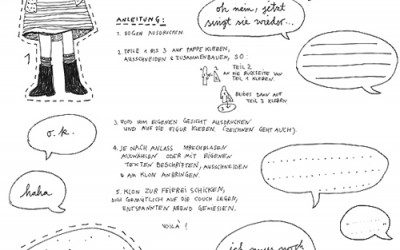 oh nein, jetzt
singt sie wieder...
ANLEITUNG:
1. BOGEN AUSDRUCKEN
2. TEILE 1 BIS 3 AUF PAPPE KLEBEN,
AUSSCHNEIDEN & ZUSAMMENBAUEN, SO:
TEIL 2
AN DIE RÜCKSEITE VON
TEIL 1 KLEBEN.
DIESES DANN AUF
TEIL 3 KLEBEN
1
3. FOTO VOM EIGENEN GESICHT AUSDRUCKEN
UND AUF DIE FIGUR KLEBEN. (ZEICHNEN GEHT AUCH).
o.k.
4. JE NACH ANLASS SPRECHBLASEN
AUSWÄHLEN ODER MIT EIGENEN
TEXTEN BESCHRIFTEN, AUSSCHNEIDEN
& AM KLON ANBRINGEN.
haha
5. KLON ZUR FEIEREI SCHICKEN,
SICH GEMÜTLICH AUF DIE COUCH LEGEN,
ENTSPANNTEN ABEND GENIESSEN.
VOILÀ!
ich muss noch